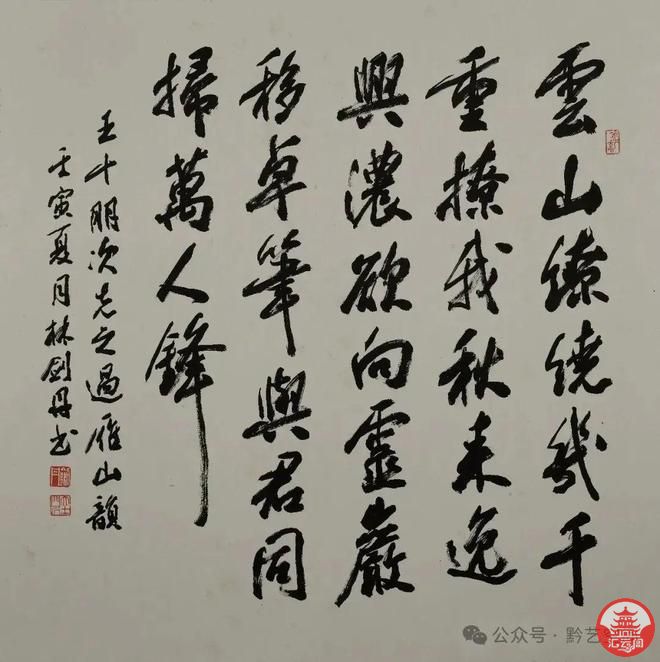 雲山繚繞幾千
重撩我秋来逸
興濃欲向靈巖
移卓筆與君同
掃萬人鋒
王十朋次先之過雁山韻
壬寅夏月林劍丹书
公众号·黔艺
汇云阁